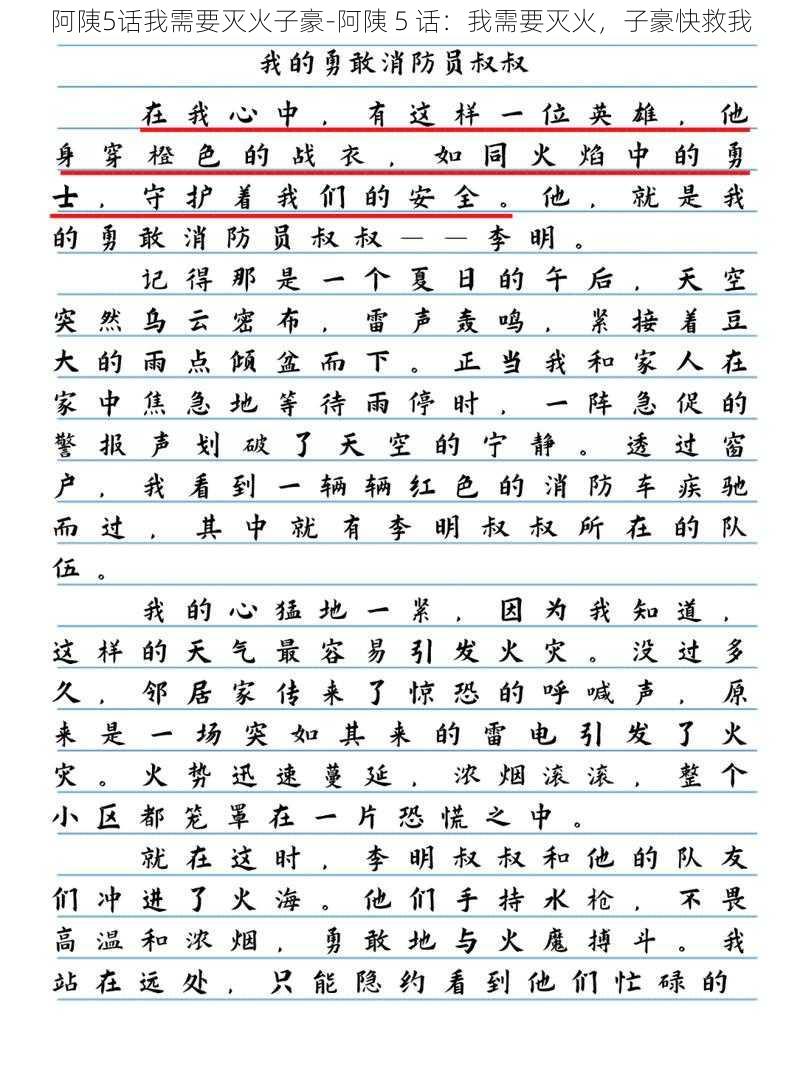 阿陊5话我需要灭火子豪-阿陊 5 话：我需要灭火，子豪快救我
我的勇敢消防员叔叔
在我心中，有这样一位英雄，他
身穿橙色的战衣，如同火焰中的勇
士，守护着我们的安全。他，就是我
的勇敢消防员叔叔——李明。
记得那是一个夏日的午后，天空
突然乌云密布，雷声轰鸣，紧接着豆
大的雨点倾盆而下。正当我和家人在
家中焦急地等待雨停时，一阵急促的
警报声划破了天空的宁静。透过窗
户，我看到一辆辆红色的消防车疾驰
而过，其中就有李明叔叔所在的队
伍。
我的心猛地一紧，因为我知道，
这样的天气最容易引发火灾。没过多
久，邻居家传来了惊恐的呼喊声，原
来是一场突如其来的雷电引发了火
灾。火势迅速蔓延，浓烟滚滚，整个
小区都笼罩在一片恐慌之中。
就在这时，李明叔叔和他的队友
们冲进了火海。他们手持水枪，不畏
高温和浓烟，勇敢地与火魔搏斗。我
站在远处，只能隐约看到他们忙碌的